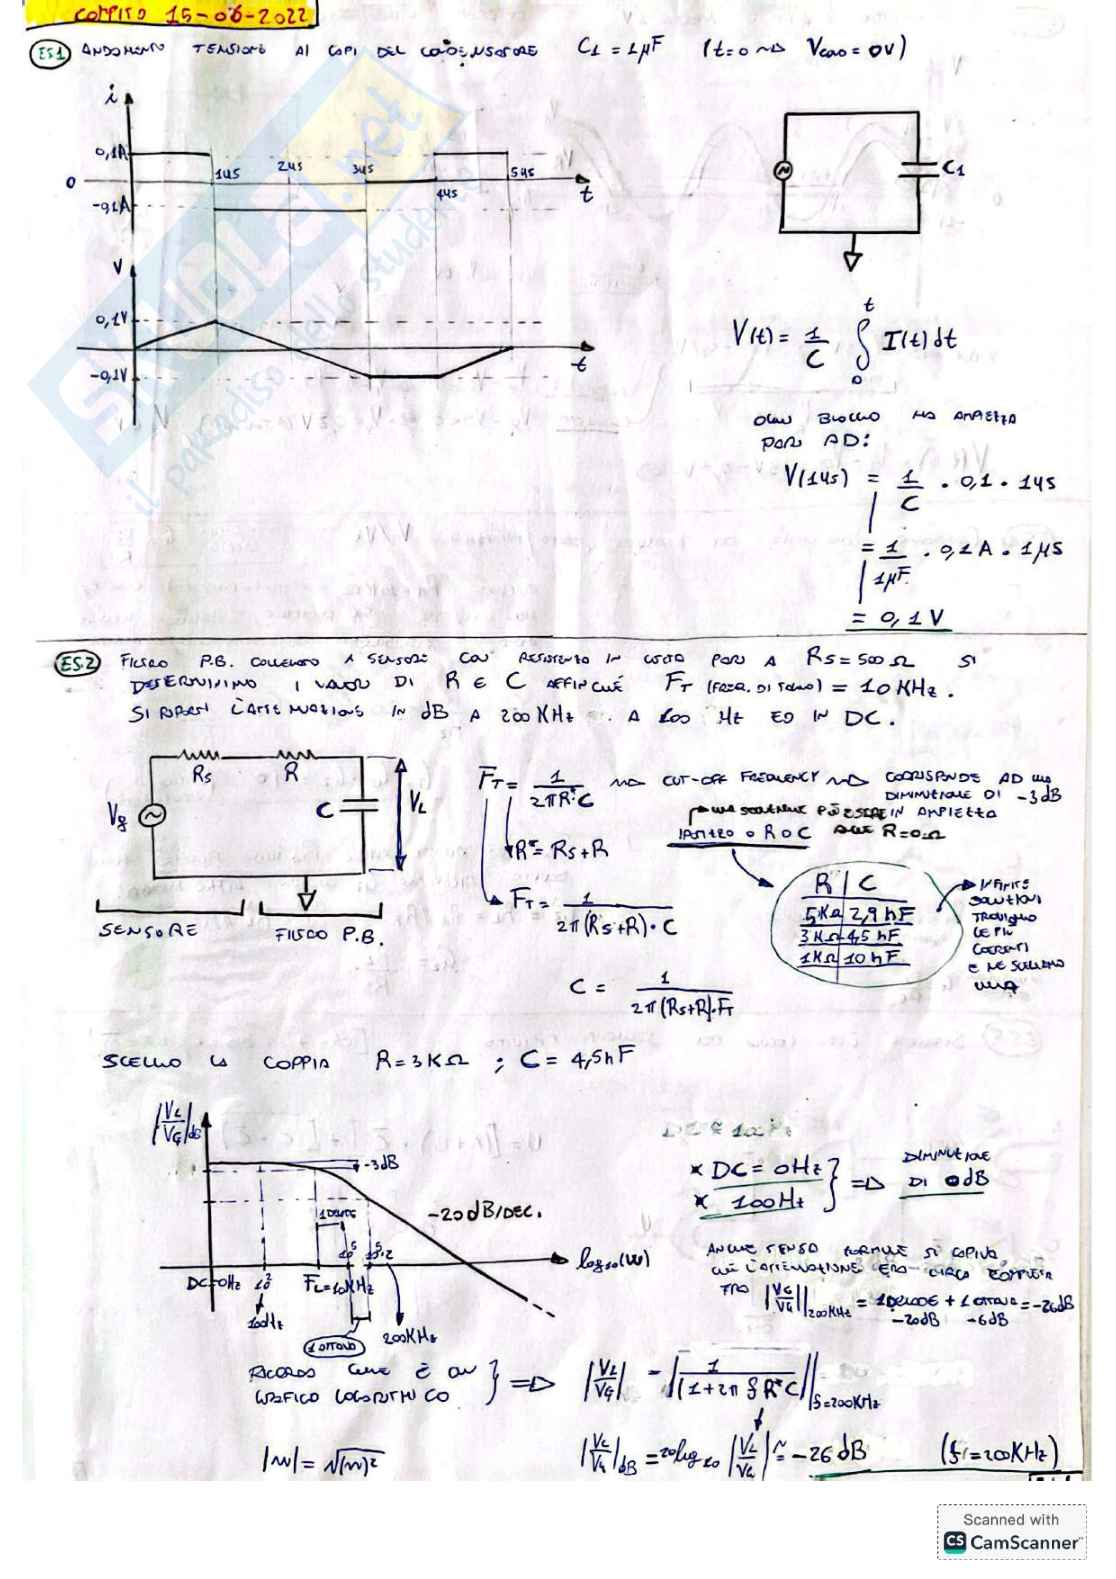 COMPITO 15-06-2022
ES1 ANDAMENTO TENSIONE AI CAPI DEL CONDENSATORE C1 = 1μF (t=0 → Vcap = 0V)
i
0,1A
0
-0,1A
1us 2us 3us 4us 5us
t
C1
V
0,1V
-0,1V
t
V(t) = 1/C ∫ 0 t I(t) dt
OGNI BLOCCO HA AMPIEZZA
PARI AD:
V(1us) = 1/C · 0,1 · 1us
= 1/1μF · 0,1A · 1μs
= 0,1V
ES2 FILTRO P.B. COLLEGATO A SENSORE CON RESISTENZA IN USCITA PARI A Rs = 500Ω SI
DETERMININO I VALORI DI R E C AFFINCHÉ FT (FREQ. DI TAGLIO) = 10KHz.
SI RIPORTI L'ATTENUAZIONE IN dB A 200KHz A 100 Hz ED IN DC.
Rs R
Vg C VL
SENSORE FILTRO P.B.
FT = 1/2πR*C → CUT-OFF FREQUENCY → CORRISPONDE AD UNA
DIMINUZIONE DI -3dB
IN AMPIEZZA
R* = Rs+R
FT = 1/2π(Rs+R)·C
C = 1/2π(Rs+R)·FT
R=0Ω
R | C
5KΩ 2,9nF
3KΩ 4,5nF
1KΩ 10nF
INFINITE
SOLUZIONI
TROVIAMO
LE PIÙ
COERENTI
E NE SCELGO
UNA
SCELGO LA COPPIA R=3KΩ ; C=4,5nF
|VL/VG|dB
-3dB
-20dB/DEC.
1 DECADE
log10(w)
DC=0Hz 10² FL=10KHz 10⁵ 10⁵·2
100Hz
1 OTTAVA
200KHz
* DC = 0Hz
* 100Hz
⇒ DIMINUZIONE
DI 0dB
ANCHE SENZA FORMULE SI CAPIVA
CHE L'ATTENUAZIONE ERA CIRCA
|VL/VG| 200KHz = 1 DECADE + 1 OTTAVA = -26dB
-20dB -6dB
RICORDO CHE È UN
GRAFICO LOGARITMICO
⇒ |VL/VG| = √ 1/(1+2π f R*C) | f=200KHz
|m| = √(m)²
|VL/VG|dB = 20log10 |VL/VG| ≃ -26dB (f=200KHz)
Scanned with
CS CamScanner
SKUOLA.net
il paradiso dello studente